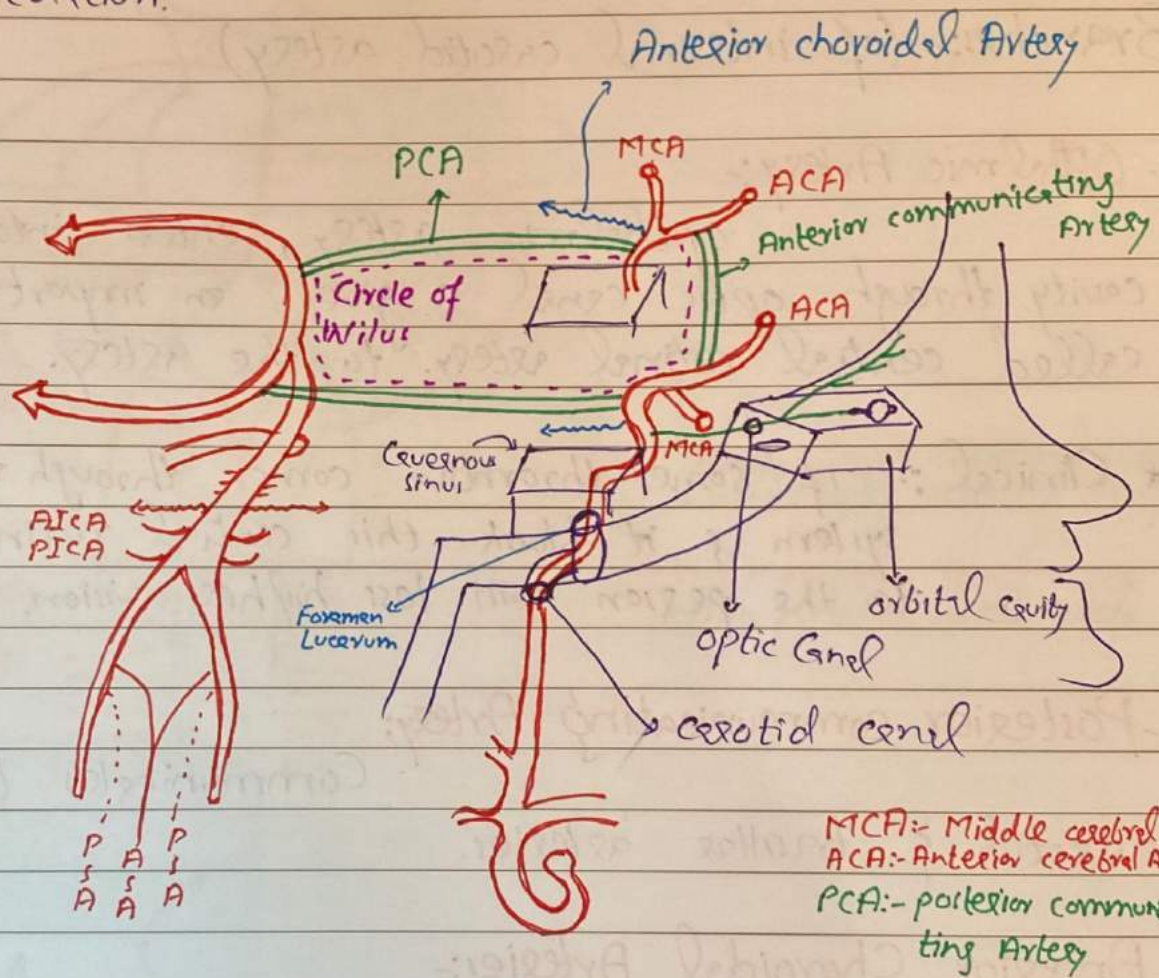 Anterior choroidal Artery
MCA
PCA
ACA
Anterior communicating
Artery
Circle of
Wilus
ACA
MCA
Cavernous
sinus
AICA
PICA
Foramen
Lucerum
orbital cavity
Optic Canal
carotid canal
P
S
A
A
S
A
P
S
A
MCA:- Middle cerebral
ACA:- Anterior cerebral A
PCA:- posterior commun
ting Artery